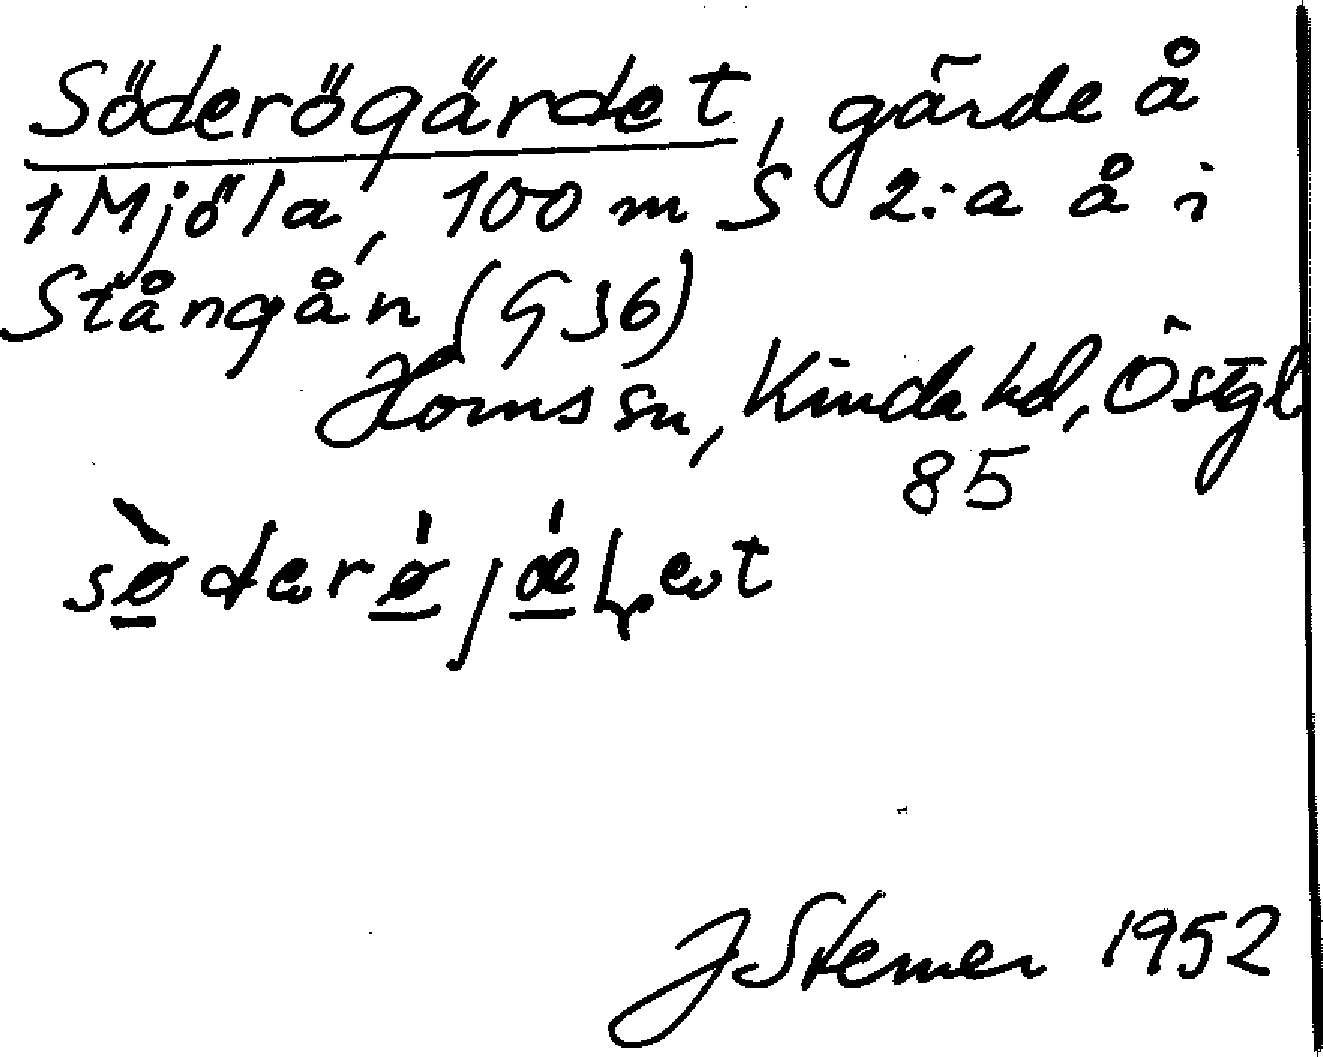 Söderögärdet, gärde å
1 Mjöla, 100 m S 2:a å i
Stångån (G36)
Horns sn, Kinda hd, Östgl
85
J Sterner 1952